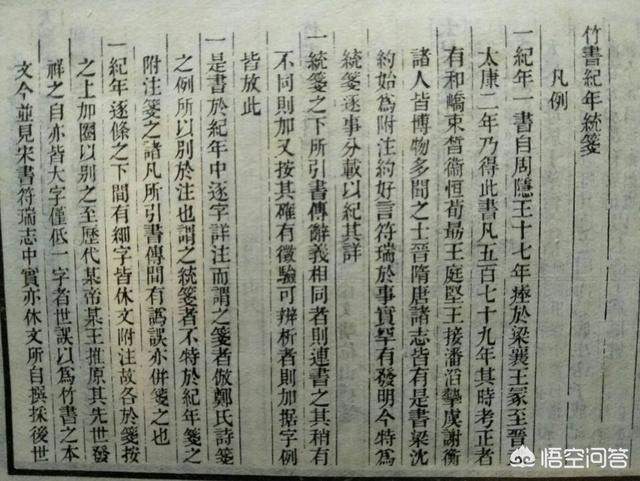 竹書紀年統箋
凡例
一紀年一書自周隱王十七年瘞於梁襄王冢至晉
太康二年乃得此書凡五百七十九年其時考正者
有和嶠束晳衞恒荀勗王庭堅王接潘滔摯虞謝衡
諸人皆博物多聞之士晉隋唐諸志皆有是書梁沈
約始爲附注約好言符瑞於事實罕有發明今特爲
統箋逐事分載以紀其詳
一統箋之下所引書傳辭義相同者則連書之其稍有
不同則加又按其確有徵驗可辨析者則加据字例
皆放此
一是書於紀年中逐字詳注而謂之箋者倣鄭氏詩箋
之例所以别於注也謂之統箋者不特於紀年箋之
附注箋之諸凡所引書傳間有譌誤亦併箋之也
一紀年逐條之下間有細字皆休文附注故各於箋按
之上加圈以别之至歷代某帝某王推原其先世發
祥之自亦皆大字僅低一字者世誤以爲竹書之本
文今並見宋書符瑞志中實亦休文所自撰採後世
悟空问答